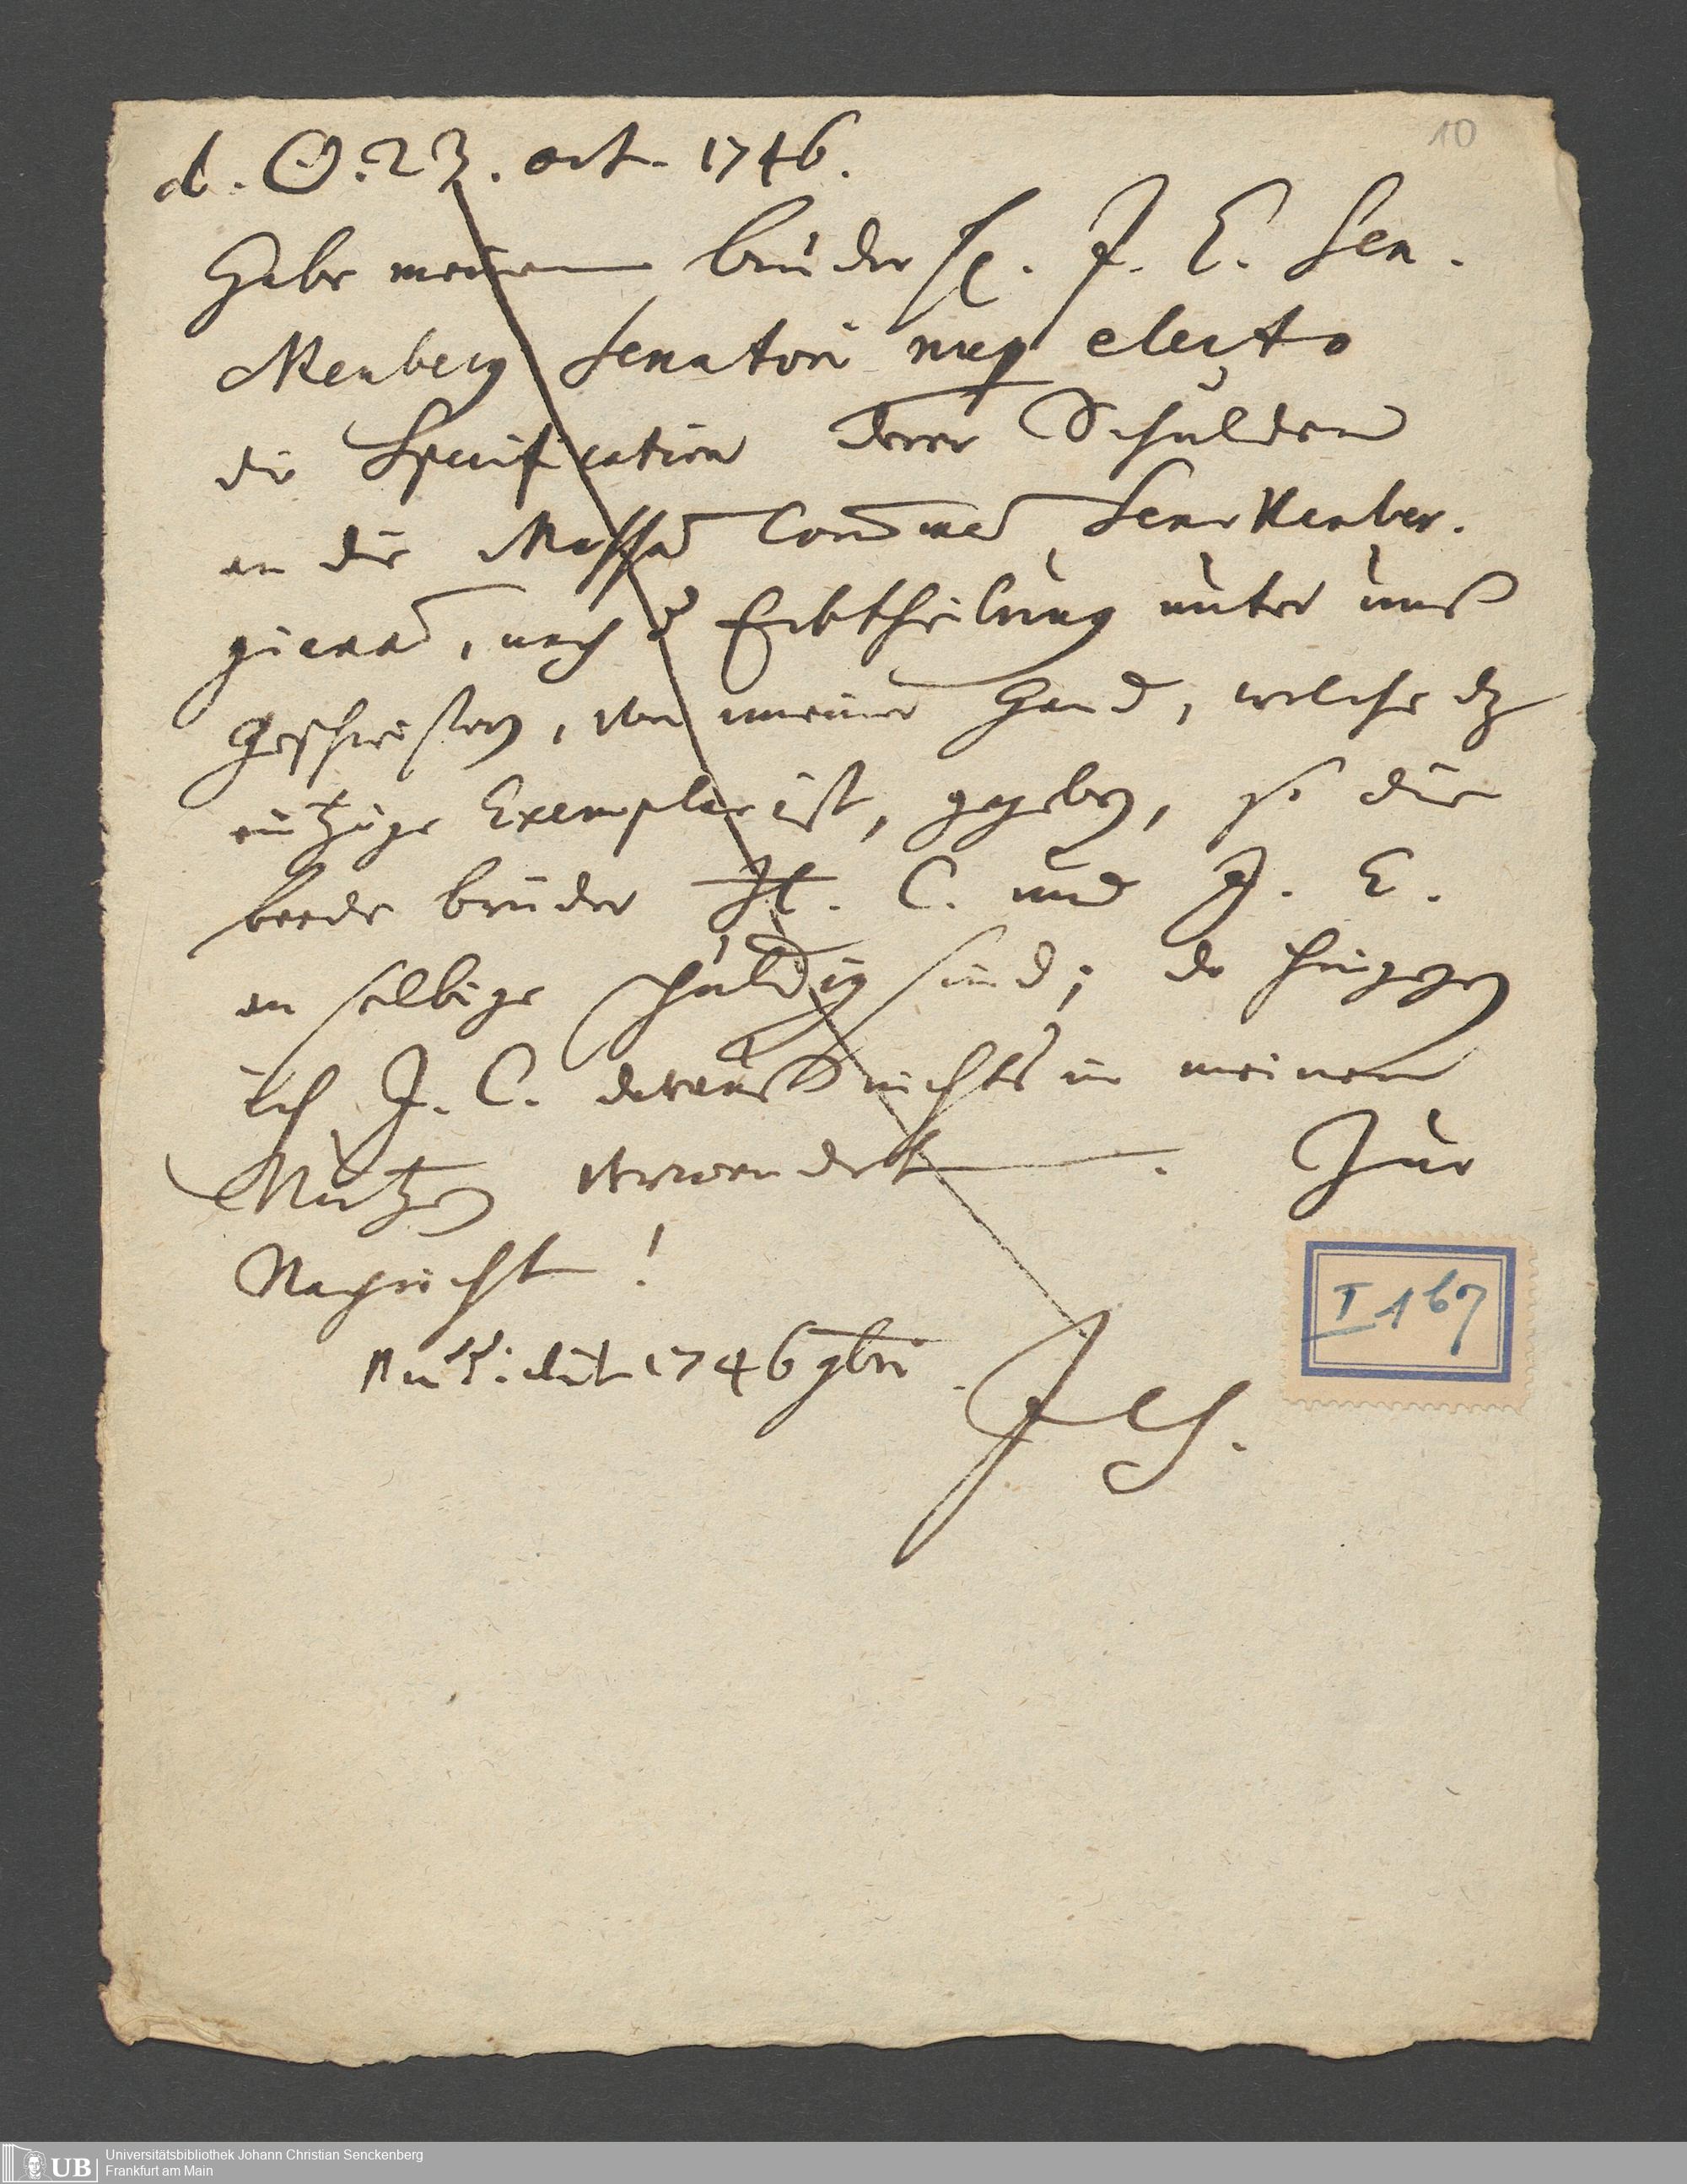 10
d. ☉. 23. oct. 1746.
Habe meinem bruder H. J. E. Sen.
Kenberg Senatori neq electo
die Specification derer Schulden
an die Massam Commun Senckenber.
gianam, nach d Erbtheilung unter unß
Geschwistern, von meiner Hand, welche dz
einzige Exemplar ist, gegeben, so die
beede brüder H. C. und J. E.
an selbige schuldig sind; da hingegen
ich J. C. darauß nichts in meinen
Nutzen verwendet. Zur
Nachricht!
1746 9bri
JCS.
I 167
UB
Universitätsbibliothek Johann Christian Senckenberg
Frankfurt am Main